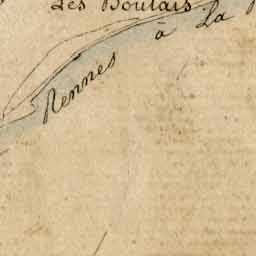 Les Boulais
Rennes à La